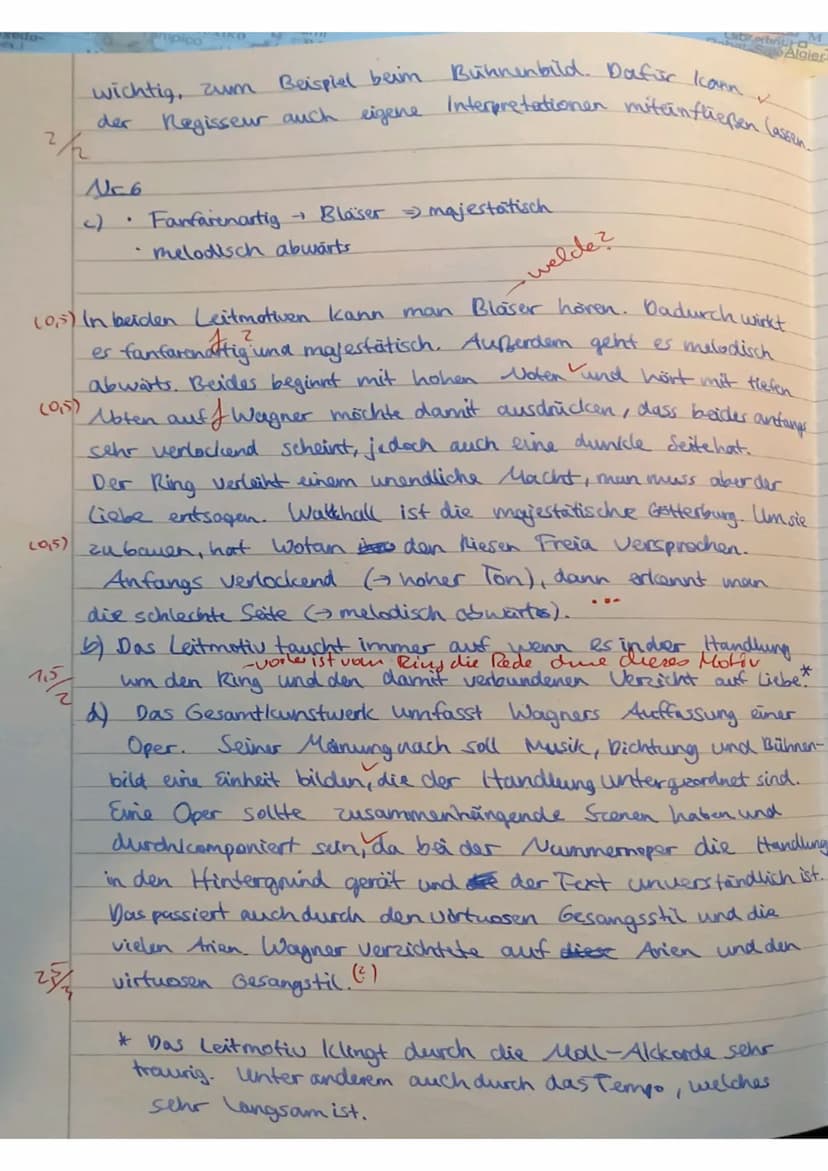 Algier
wichtig, zum Beispiel beim Bühnenbild. Dafür kann
der Regisseur auch eigene Interpretationen miteinfließen lassen.
2/2
Nr 6
c) · Fanfarenartig → Bläser ⇒ majestätisch
· melodisch abwärts
welche?
(0,5) In beiden Leitmotiven kann man Bläser hören. Dadurch wirkt
?
es fanfarenartig und majestätisch. Außerdem geht es melodisch
abwärts. Beides beginnt mit hohen Noten und hört mit tiefen
(0,5) Noten auf. Wagner möchte damit ausdrücken, dass beides anfangs
sehr verlockend scheint, jedoch auch eine dunkle Seite hat.
Der Ring verleiht einem unendliche Macht, man muss aber der
Liebe entsagen. Wallhall ist die majestätische Götterburg. Um sie
(0,5) zu bauen, hat Wotan den Riesen Freia versprochen.
Anfangs verlockend (→ hoher Ton), dann erkennt man
die schlechte Seite (→ melodisch abwärts). ...
b) Das Leitmotiv taucht immer auf, wenn es in der Handlung
- vorher ist vom Ring die Rede ohne dieses Motiv
1,5/2 um den Ring und den damit verbundenen Verzicht auf Liebe.*
d) Das Gesamtkunstwerk umfasst Wagners Auffassung einer
Oper. Seiner Meinung nach soll Musik, Dichtung und Bühnen-
bild eine Einheit bilden, die der Handlung untergeordnet sind.
Eine Oper sollte zusammenhängende Szenen haben und
durchkomponiert sein, da bei der Nummernoper die Handlung
in den Hintergrund gerät und der Text unverständlich ist.
Das passiert auch durch den virtuosen Gesangsstil und die
vielen Arien. Wagner verzichtete auf diese Arien und den
virtuosen Gesangstil. (?)
* Das Leitmotiv klingt durch die Moll-Akkorde sehr
traurig. Unter anderem auch durch das Tempo, welches
sehr langsam ist.